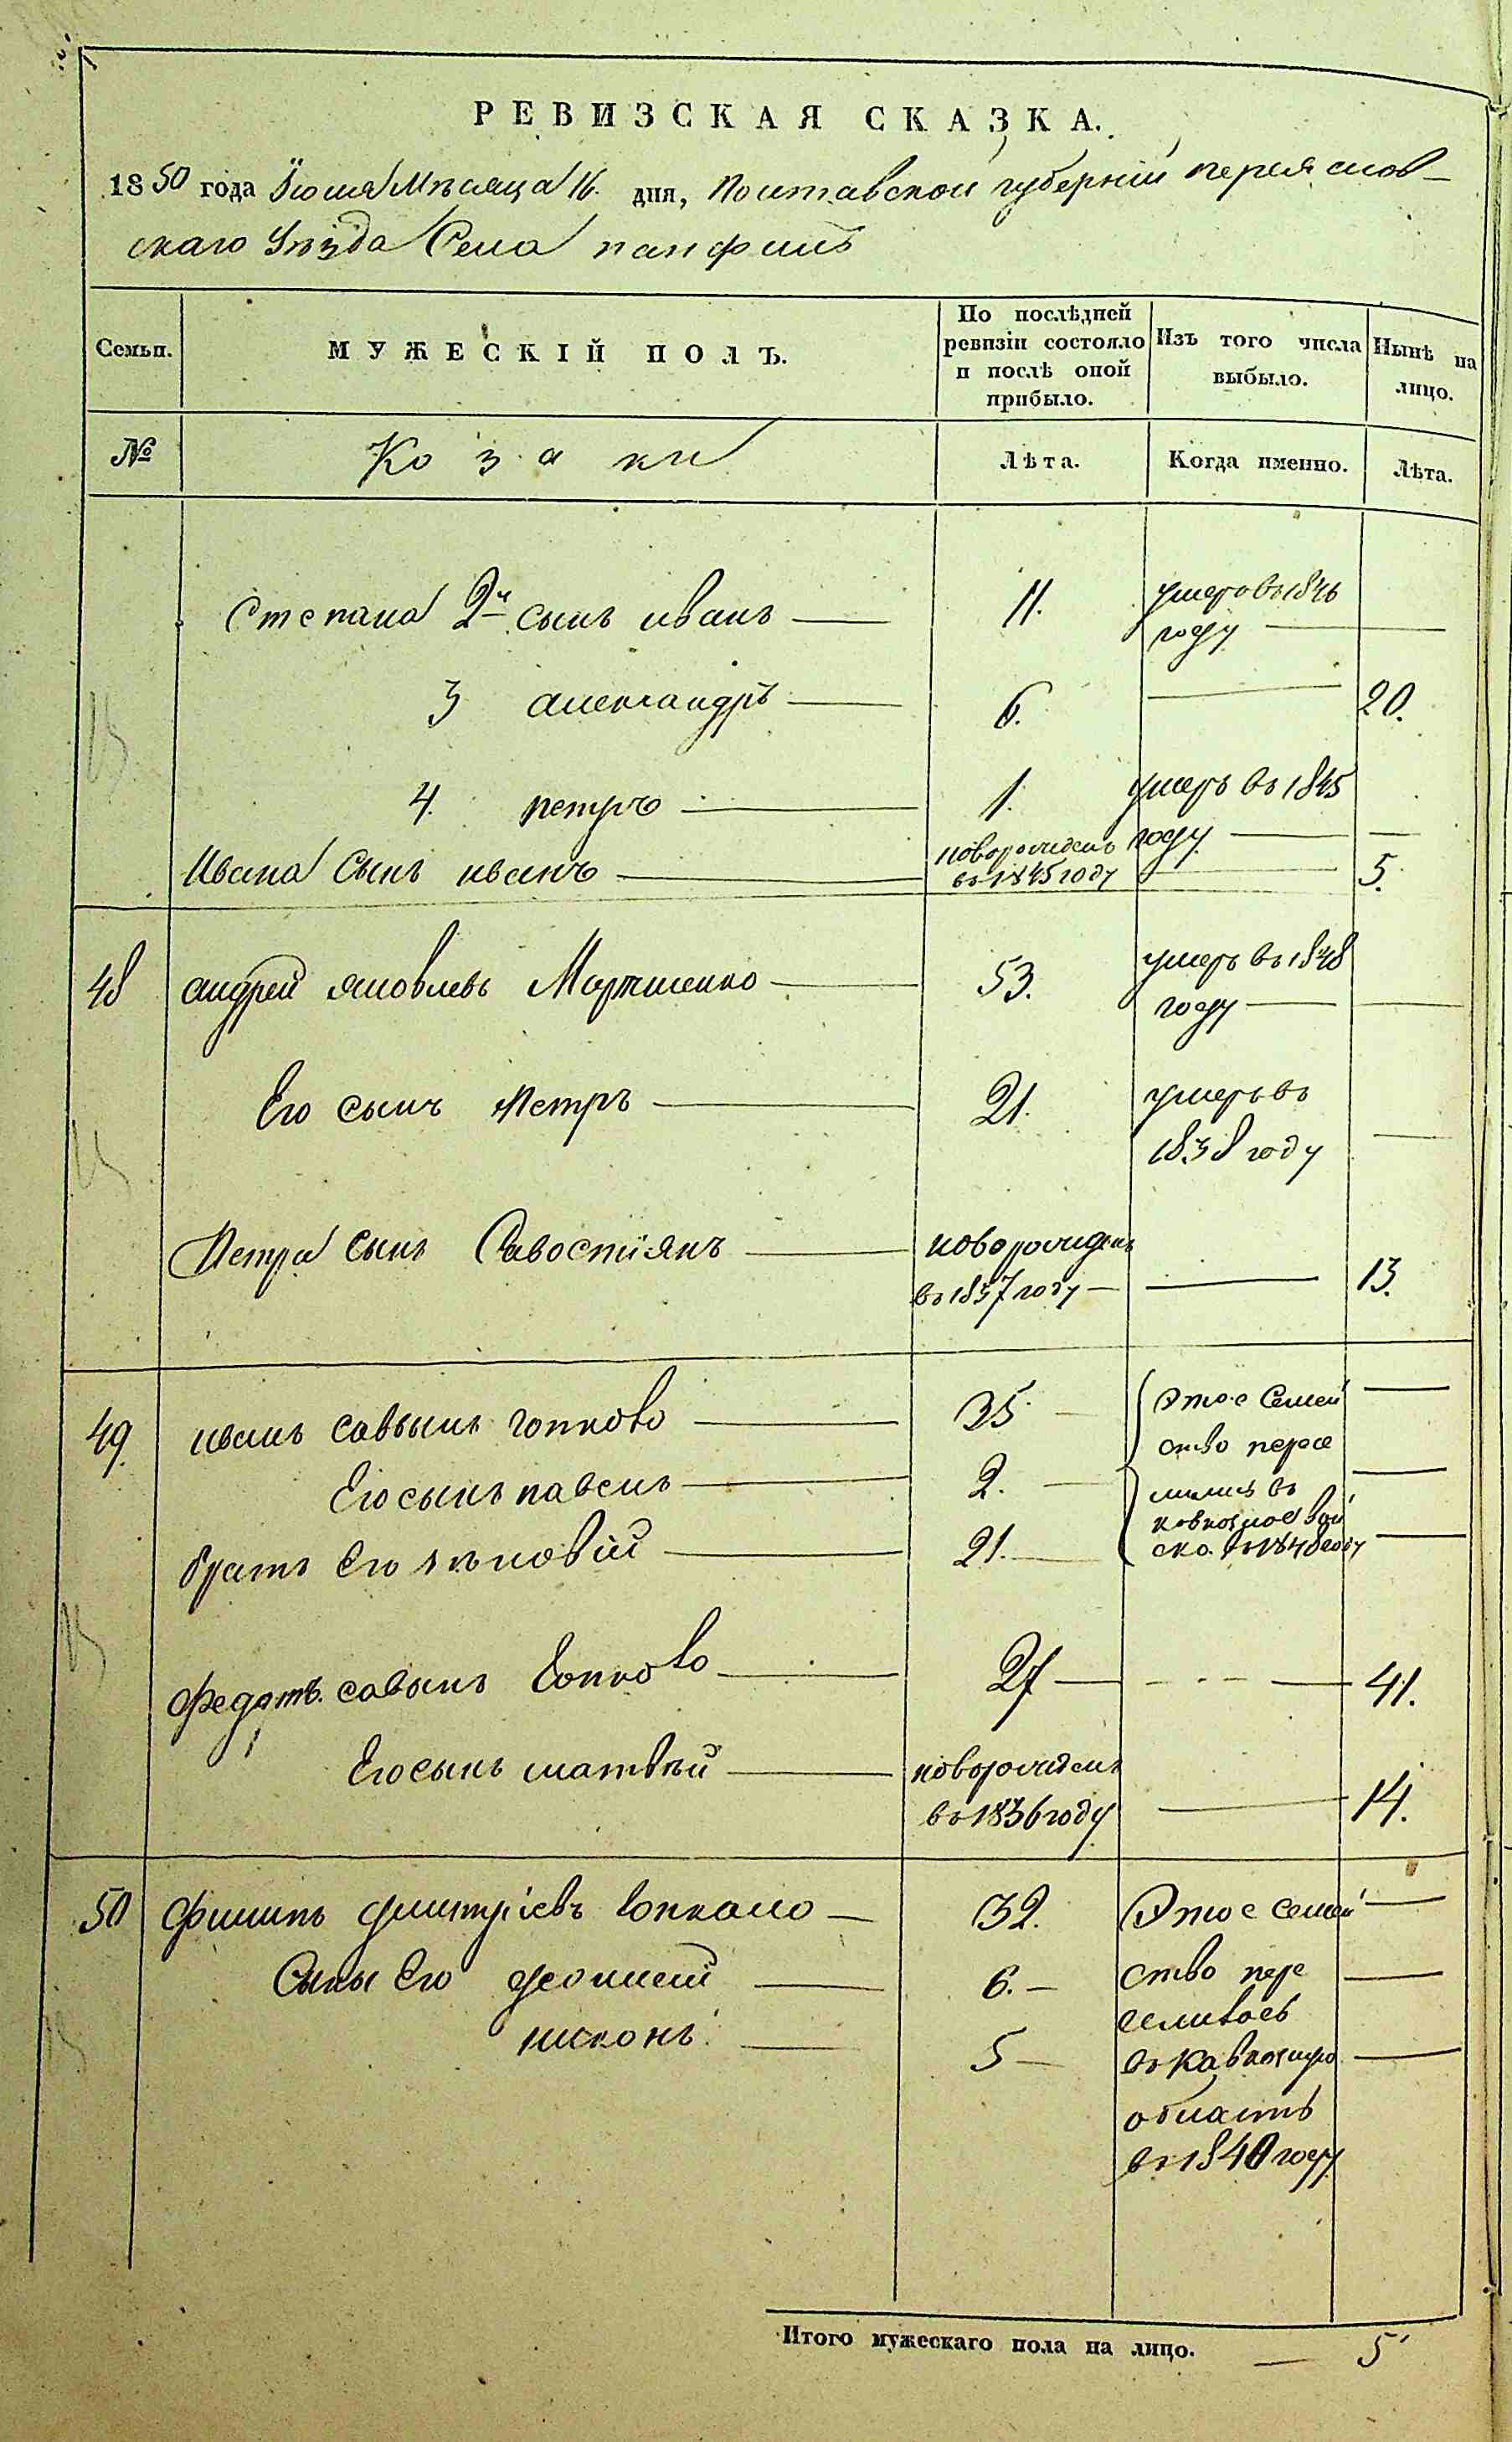 РЕВИЗСКАЯ СКАЗКА.
1850 года Іюля Мѣсяца 16. дня, Полтавской губерніи переяслов-
скаго Уѣзда Села панфилъ
Семьи.
МУЖЕСКІЙ ПОЛЪ.
По послѣдней
ревизіи состояло
и послѣ оной
прибыло.
Изъ того числа
выбыло.
Нынѣ на
лицо.
№
Козаки
Лѣта.
Когда именно.
Лѣта.
Степана 2й сынъ иванъ — 11. умеръ въ 1846
году —
3 александръ — 6. — 20.
4. петръ — 1. умеръ въ 1845
году —
Ивана Сынъ иванъ — новорожденъ
въ 1845 году — 5.
48 андрей яковлевъ — 53. умеръ въ 1848
году —
Его сынъ Петръ — 21. умеръ въ
1838 году —
Петра сынъ Савостіянъ — новорожденъ
въ 1837 году — — 13.
49. иванъ саввинъ — 35 — Этое Семей —
ство пересе
Его сынъ павелъ — 2. — лилисъ въ —
братъ Его — 21. — ско въ 1848 году —
федотъ савинъ — 27 — — 41.
Его сынъ матвѣй — новорожденъ
въ 1836 году — 14.
50 филипъ дмитріевъ — 32. Этое семей —
Сыны Его — 6. — ство пере —
селилось
никонъ — 5 — въ —
область
въ 1840 году
Итого мужескаго пола на лицо. — 5